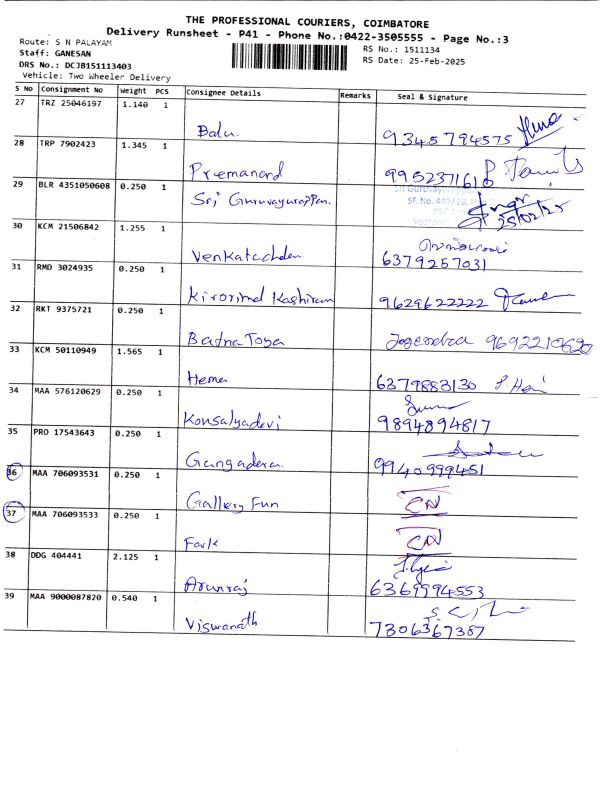 THE PROFESSIONAL COURIERS, COIMBATORE
Delivery Runsheet - P41 - Phone No.:0422-3505555 - Page No.:3
Route: S N PALAYAM
Staff: GANESAN
DRS No.: DCJB151113403
Vehicle: Two Wheeler Delivery
RS No.: 1511134
RS Date: 25-Feb-2025
S No Consignment No Weight PCS Consignee Details Remarks Seal & Signature
27 TRZ 25046197 1.140 1
Balu. 9345794575
28 TRP 7902423 1.345 1
Premanand 9952371618
29 BLR 4351050608 0.250 1
Sri Guruvayurappan. 25/02/25
30 KCM 21506842 1.255 1
Venkatachalam 6379257031
31 RMD 3024935 0.250 1
Kirorimal Kashiram 9629622222
32 RKT 9375721 0.250 1
Batna Toya Jogendra 9692210620
33 KCM 50110949 1.565 1
Hema 6379883130
34 MAA 576120629 0.250 1
Konsalyadevi 9894894817
35 PRO 17543643 0.250 1
Gangadera. 9940999451
36 MAA 706093531 0.250 1
Gallery Fun CN
37 MAA 706093533 0.250 1
Fark CN
38 DDG 404441 2.125 1
Arunraj 6369994553
39 MAA 9000087820 0.540 1
Viswanath 7306367387